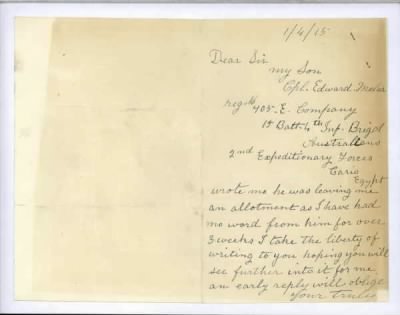 1/4/15
Dear Sir
my Son
Cpl. Edward
reg No 405 - E. Company
1st Batt - 4th Inf. Brigd
Australians
2nd Expeditionary Forces
Cario
Egypt
wrote me he was leaving me
an allotment as I have had
no word from him for over
3 weeks I take the liberty of
writing to you hoping you will
see further into it for me
an early reply will oblige
Your truly